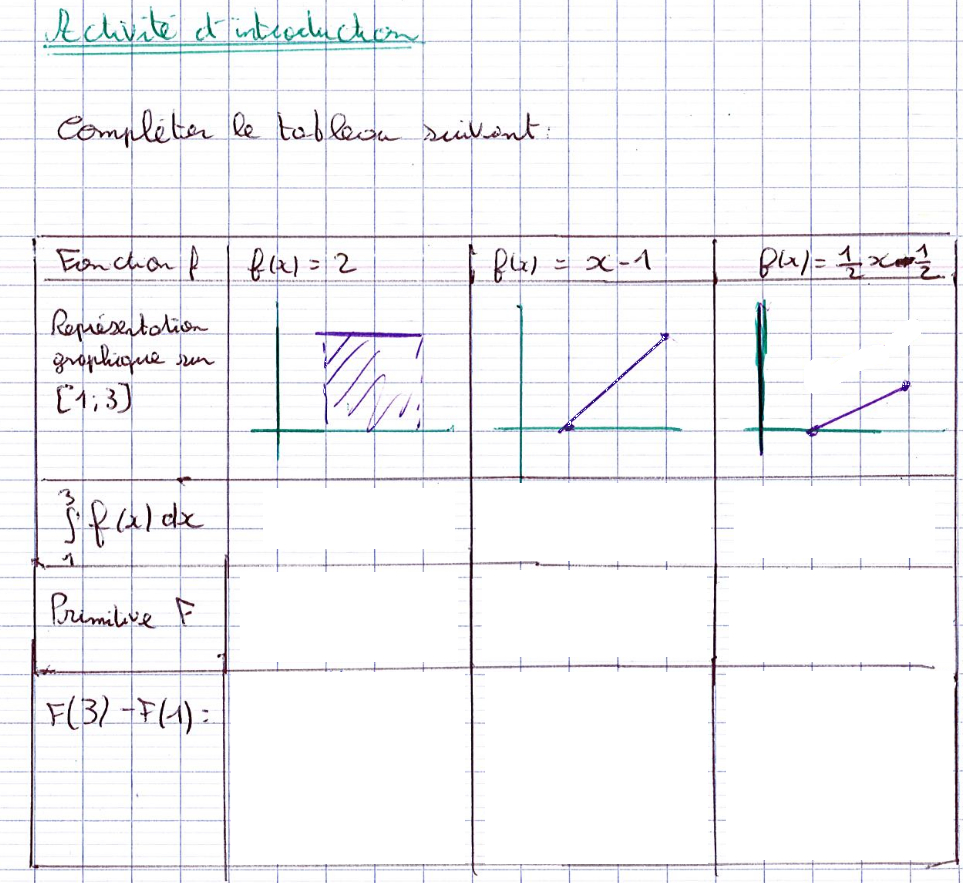 Activité d'introduction
Compléter le tableau suivant:
Fonction f
f(x) = 2
f(x) = x - 1
f(x) = 1/2 x - 1/2
Représentation
graphique sur
[1; 3]
∫₁³ f(x) dx
Primitive F
F(3) - F(1) =